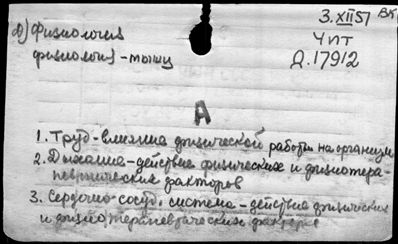 в) Физиология
физиология - мышц
3.XII 51 ВК
Чпт
Д.17912
А
1. Труд - влияние физической работы на организм
2. Дыхание - действие физических и физиотера-
певтических факторов
3. Сердечно-сосуд. система - действие физических
и физиотерапевтических факторов